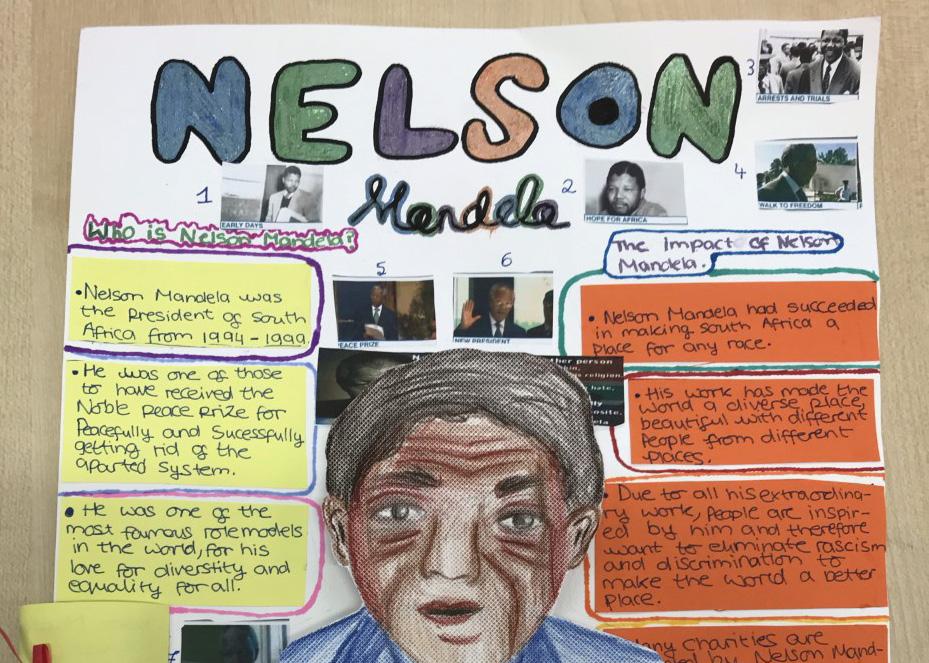 NELSON
Mandela
3
ARRESTS AND TRIALS
1
EARLY DAYS
2
HOPE FOR AFRICA
4
WALK TO FREEDOM
Who is Nelson Mandela?
The Impact of Nelson
Mandela.
5
PEACE PRIZE
6
NEW PRESIDENT
•Nelson Mandela was
the President of South
Africa from 1994-1999
•He was one of those
to have received the
Noble Peace Prize for
Peacefully and Sucessfully
getting rid of the
aparted system.
• He was one of the
most famous rolemodels
in the world, for his
love for diverstity and
equality for all.
• Nelson Mandela had succeeded
in making South Africa a
place for any race.
•His work has made the
world a diverse place,
beautiful with different
People from different
places.
•Due to all his extraordina-
ry work, People are inspir-
ed by him and therefore
want to eliminate rascism
and discrimination to
make the world a better
place.
charities are
by Nelson Mand-
her person
religion.
hate,
7